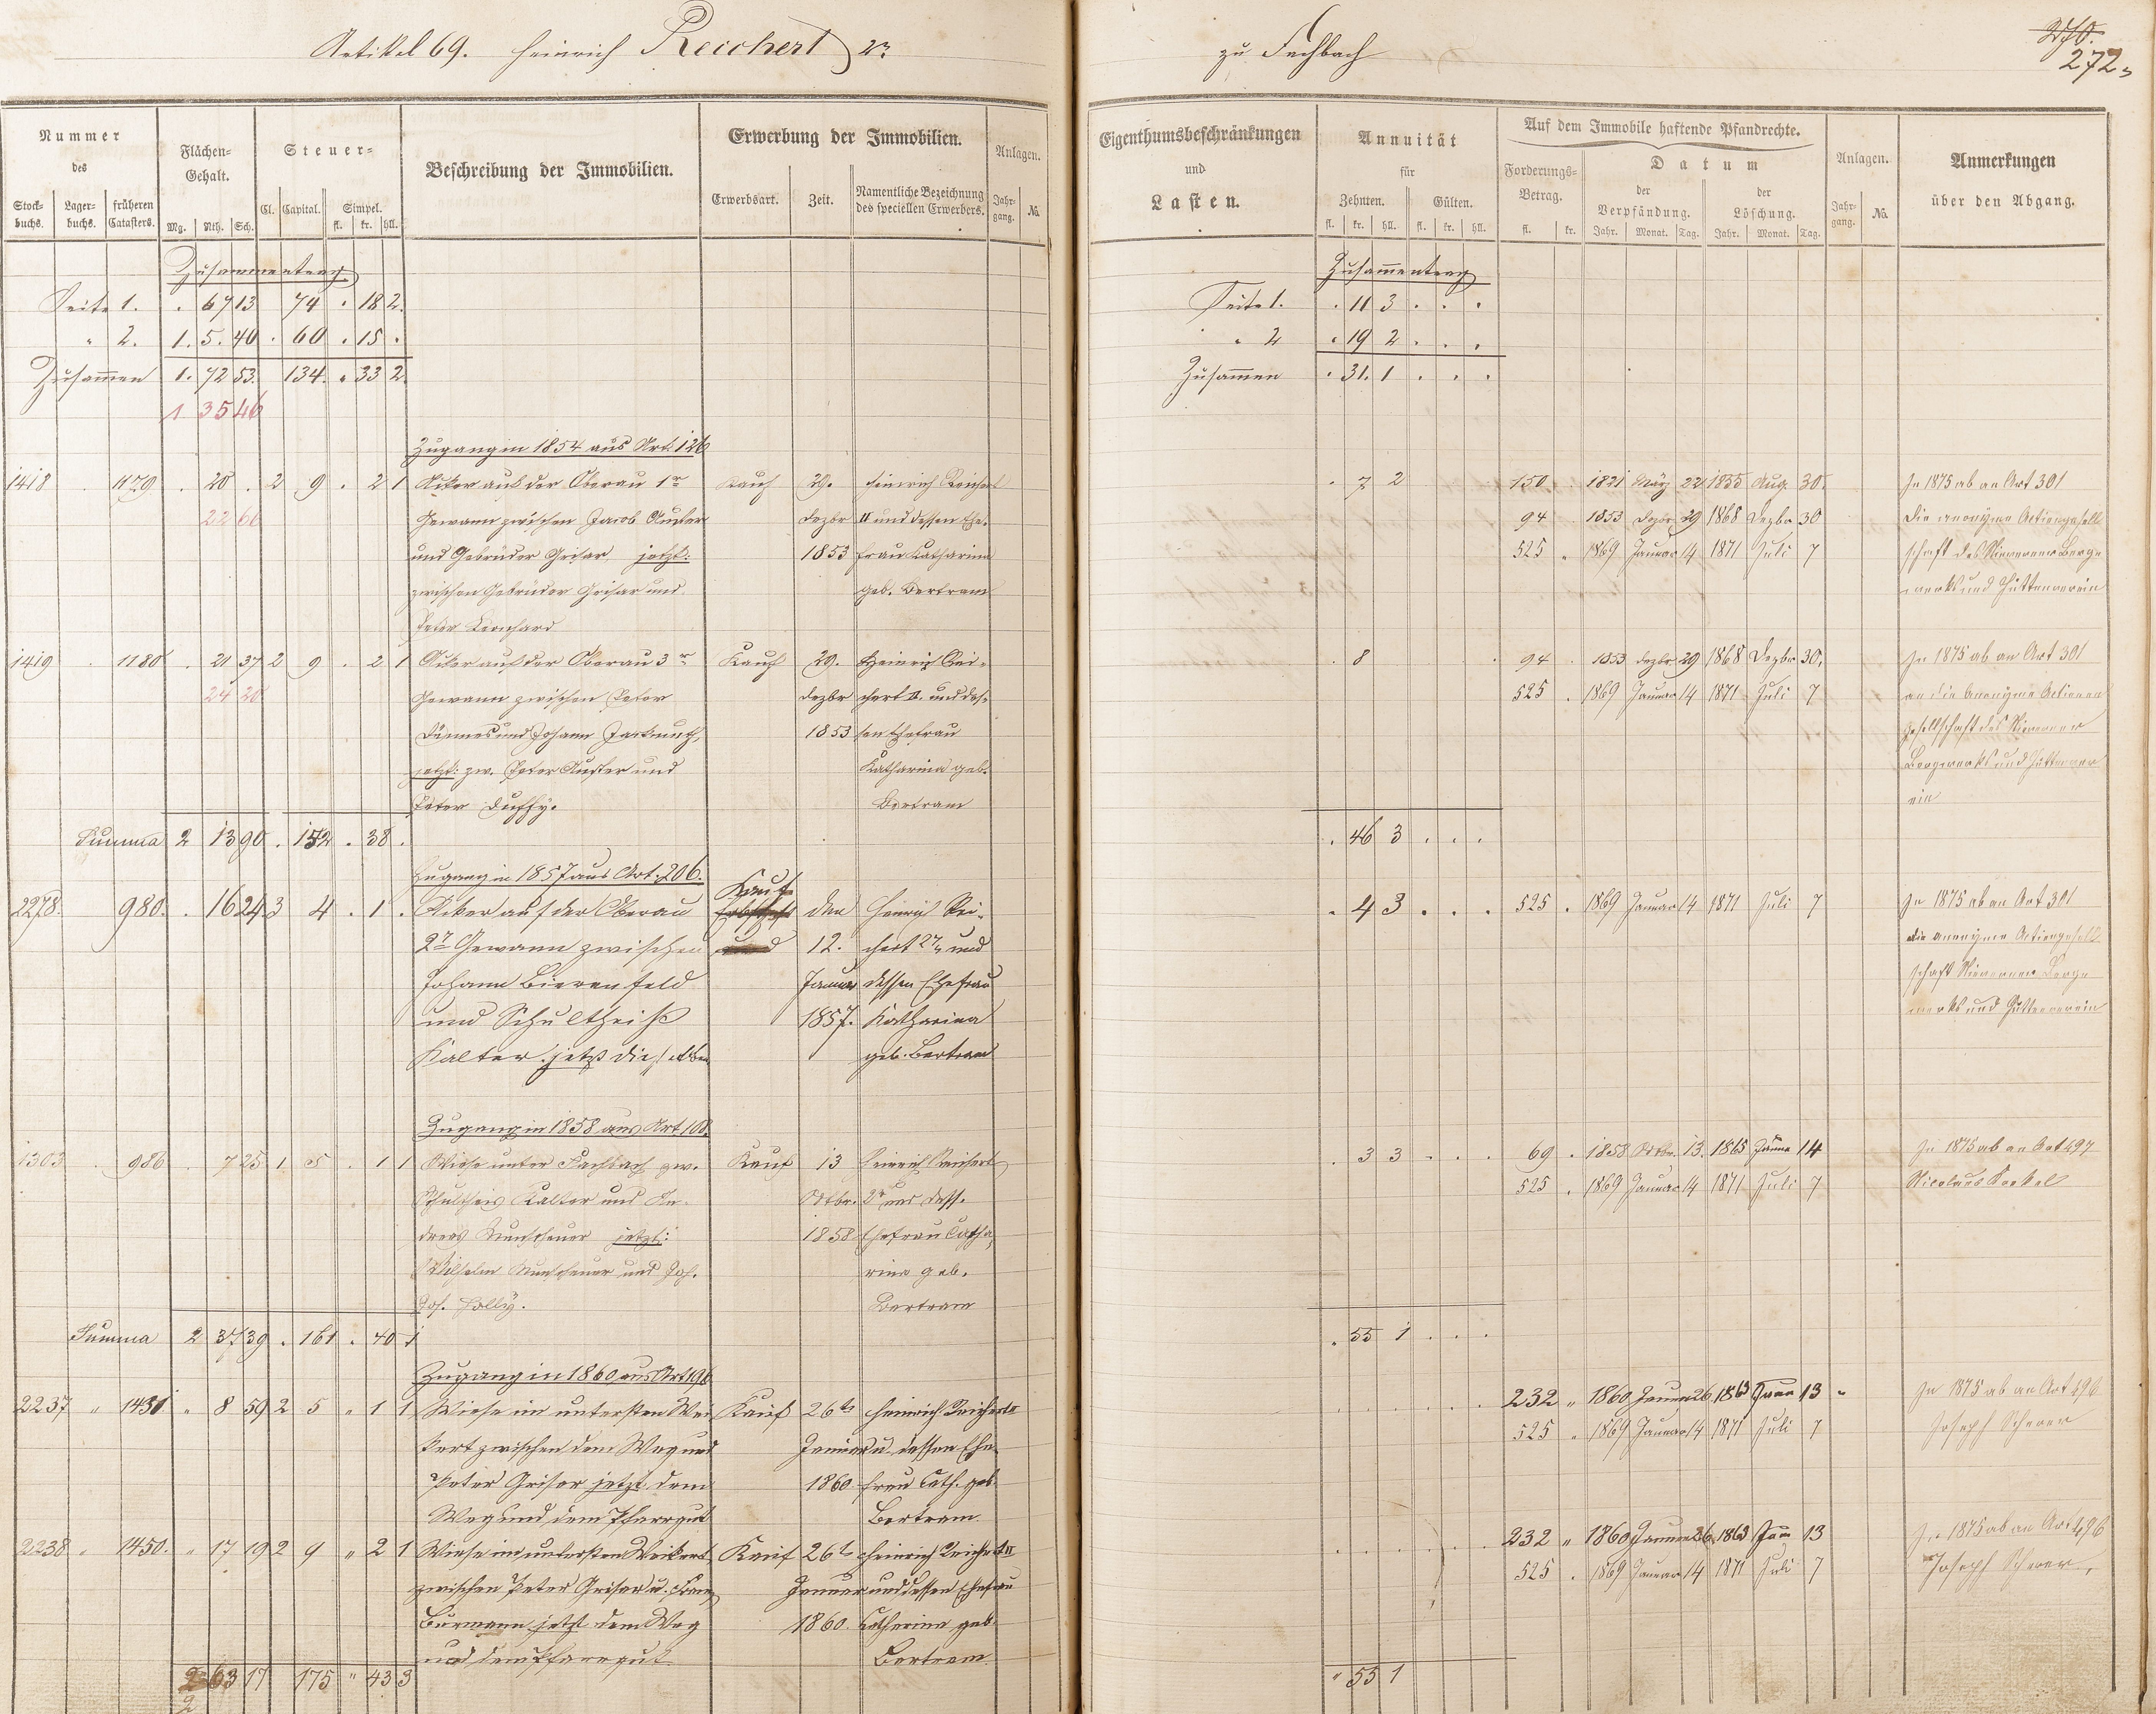 Artikel 69. Heinrich Reichert 2r
zu Fachbach
272
Nummer
des
Stock-
buchs.
Lager-
buchs.
früheren
Catasters.
Flächen-
Gehalt.
Mg. Rth. Sch.
Steuer-
Cl. Capital. Simpel.
fl. kr. hll.
Beschreibung der Immobilien.
Erwerbung der Immobilien.
Erwerbsart. Zeit.
Namentliche Bezeichnung
des speciellen Erwerbers.
Anlagen.
Jahr-
gang. No.
Zusammentrag
Seite 1. . 67 13 74 . 18 2.
" 2. 1. 5. 40 . 60 . 15 .
Zusammen 1. 72 53. 134. . 33 2.
1. 35 46
Zugang in 1854 aus Art. 126
1418 . 1179 . 20 . 2 9 . 2 1 Acker auf der Oberau 1r Kauf 29. Heinrich Reichert
22 60 Gewann zwischen Jacob Kuster Dezbr II und dessen Ehe-
und Gebrüder Grisar jetzt: 1853 frau Katharina
zwischen Gebrüder Grisar und geb. Bertram
Peter Leonhard
1419 . 1180 . 21 37 2 9 . 2 1 Acker auf der Oberau 3r Kauf 29. Heinrich Rei-
24 20 Gewann zwischen Peter Dezbr chert II. und des-
und Johann 1853 sen Ehefrau
jetzt: zw. Peter Kuster und Katharina geb.
Peter Duffy. Bertram
Summa 2 13 90 . 152 . 38 .
Zugang in 1857 aus Art. 206.
2278. 980. . 16 24 3 4 . 1 . Acker auf der Oberau Kauf Erbschaft den Heinrich Rei-
2r Gewann zwischen und 12. chert 2r und
Johann Bierenfeld Januar dessen Ehefrau
und Schultheiß 1857. Katharina
Kalter. jetzt dieselben geb. Bertram
Zugang in 1858 aus Art 108.
1303 . 986 . 7 25 1 5 . 1 1 Wiese unter Fachbach zw. Kauf 13 Heinrich Reichert
Schultheis Kalter und An- Octbr. 2r und dess.
dreas jetzt: 1858 Ehefrau Catha-
Wilhelm und Joh. rina geb.
Jos. Holly. Bertram
Summa 2 37 39 . 161 . 40 1
Zugang in 1860 aus Art 196
2237 " 1431 " 8 59 2 5 " 1 1 Wiese im untersten Wei Kauf 26te Heinrich Reichert II
kert zwischen dem Weg und Januar u. dessen Ehe
Peter Grisar jetzt dem 1860 frau Cath. geb
Weg und dem Pfarrgut Bertram.
2238 " 1450. " 17 19 2 9 " 2 1 Wiese im untersten Weikert Kauf 26te Heinrich Reichert II
zwischen Peter Grisar u. Januar und dessen Ehefrau
jetzt dem Weg 1860. Catharine geb
und dem Pfarrgut Bertram.
2 63 17 175 " 43 3
2
Eigenthumsbeschränkungen
und
Lasten.
Annuität
für
Zehnten. Gülten.
fl. kr. hll. fl. kr. hll.
Auf dem Immobile haftende Pfandrechte.
Forderungs-
Betrag.
fl. kr.
Datum
der
Verpfändung.
der
Löschung.
Jahr. Monat. Tag. Jahr. Monat. Tag.
Anlagen.
Jahr-
gang. No.
Anmerkungen
über den Abgang.
Zusammentrag
Seite 1. . 11 3 . . .
" 2 . 19 2 . . .
Zusammen . 31. 1 . . .
. 7 2 150 . 1831 März 22 1855 Aug. 30. In 1875 ab an Art 301
94 . 1853 Dezbr 29 1868 Dezbr 30 die anonyme Actiengesell
525 . 1869 Januar 14 1871 Juli 7 schaft des Nieverner Berg-
werks und Hüttenverein
. 8 . 94 . 1853 Dezbr 29 1868 Dezbr 30. In 1875 ab an Art 301
525 . 1869 Januar 14 1871 Juli 7 an die anonyme Actien
gesellschaft des Nieverner
Bergwerks und Hüttenver
ein
. 46 3 . . .
. 4 3 . . . 525 . 1869 Januar 14 1871 Juli 7 In 1875 ab an Art 301
die anonyme Actiengesell
schaft Nieverner Berg-
werks und Hüttenverein
. 3 3 . . . 69 . 1858 Octbr. 13. 1865 14 In 1875 ab an Art 497
525 . 1869 Januar 14 1871 Juli 7 Nicolaus
. 55 1 . . .
232 " 1860 Januar 26 1863 13 In 1875 ab an Art 496
525 " 1869 Januar 14 1871 Juli 7 Joseph Scherer
232 " 1860 Januar 26. 1863 13 In 1875 ab an Art 496
525 . 1869 Januar 14 1871 Juli 7 Joseph Scherer,
" 55 1